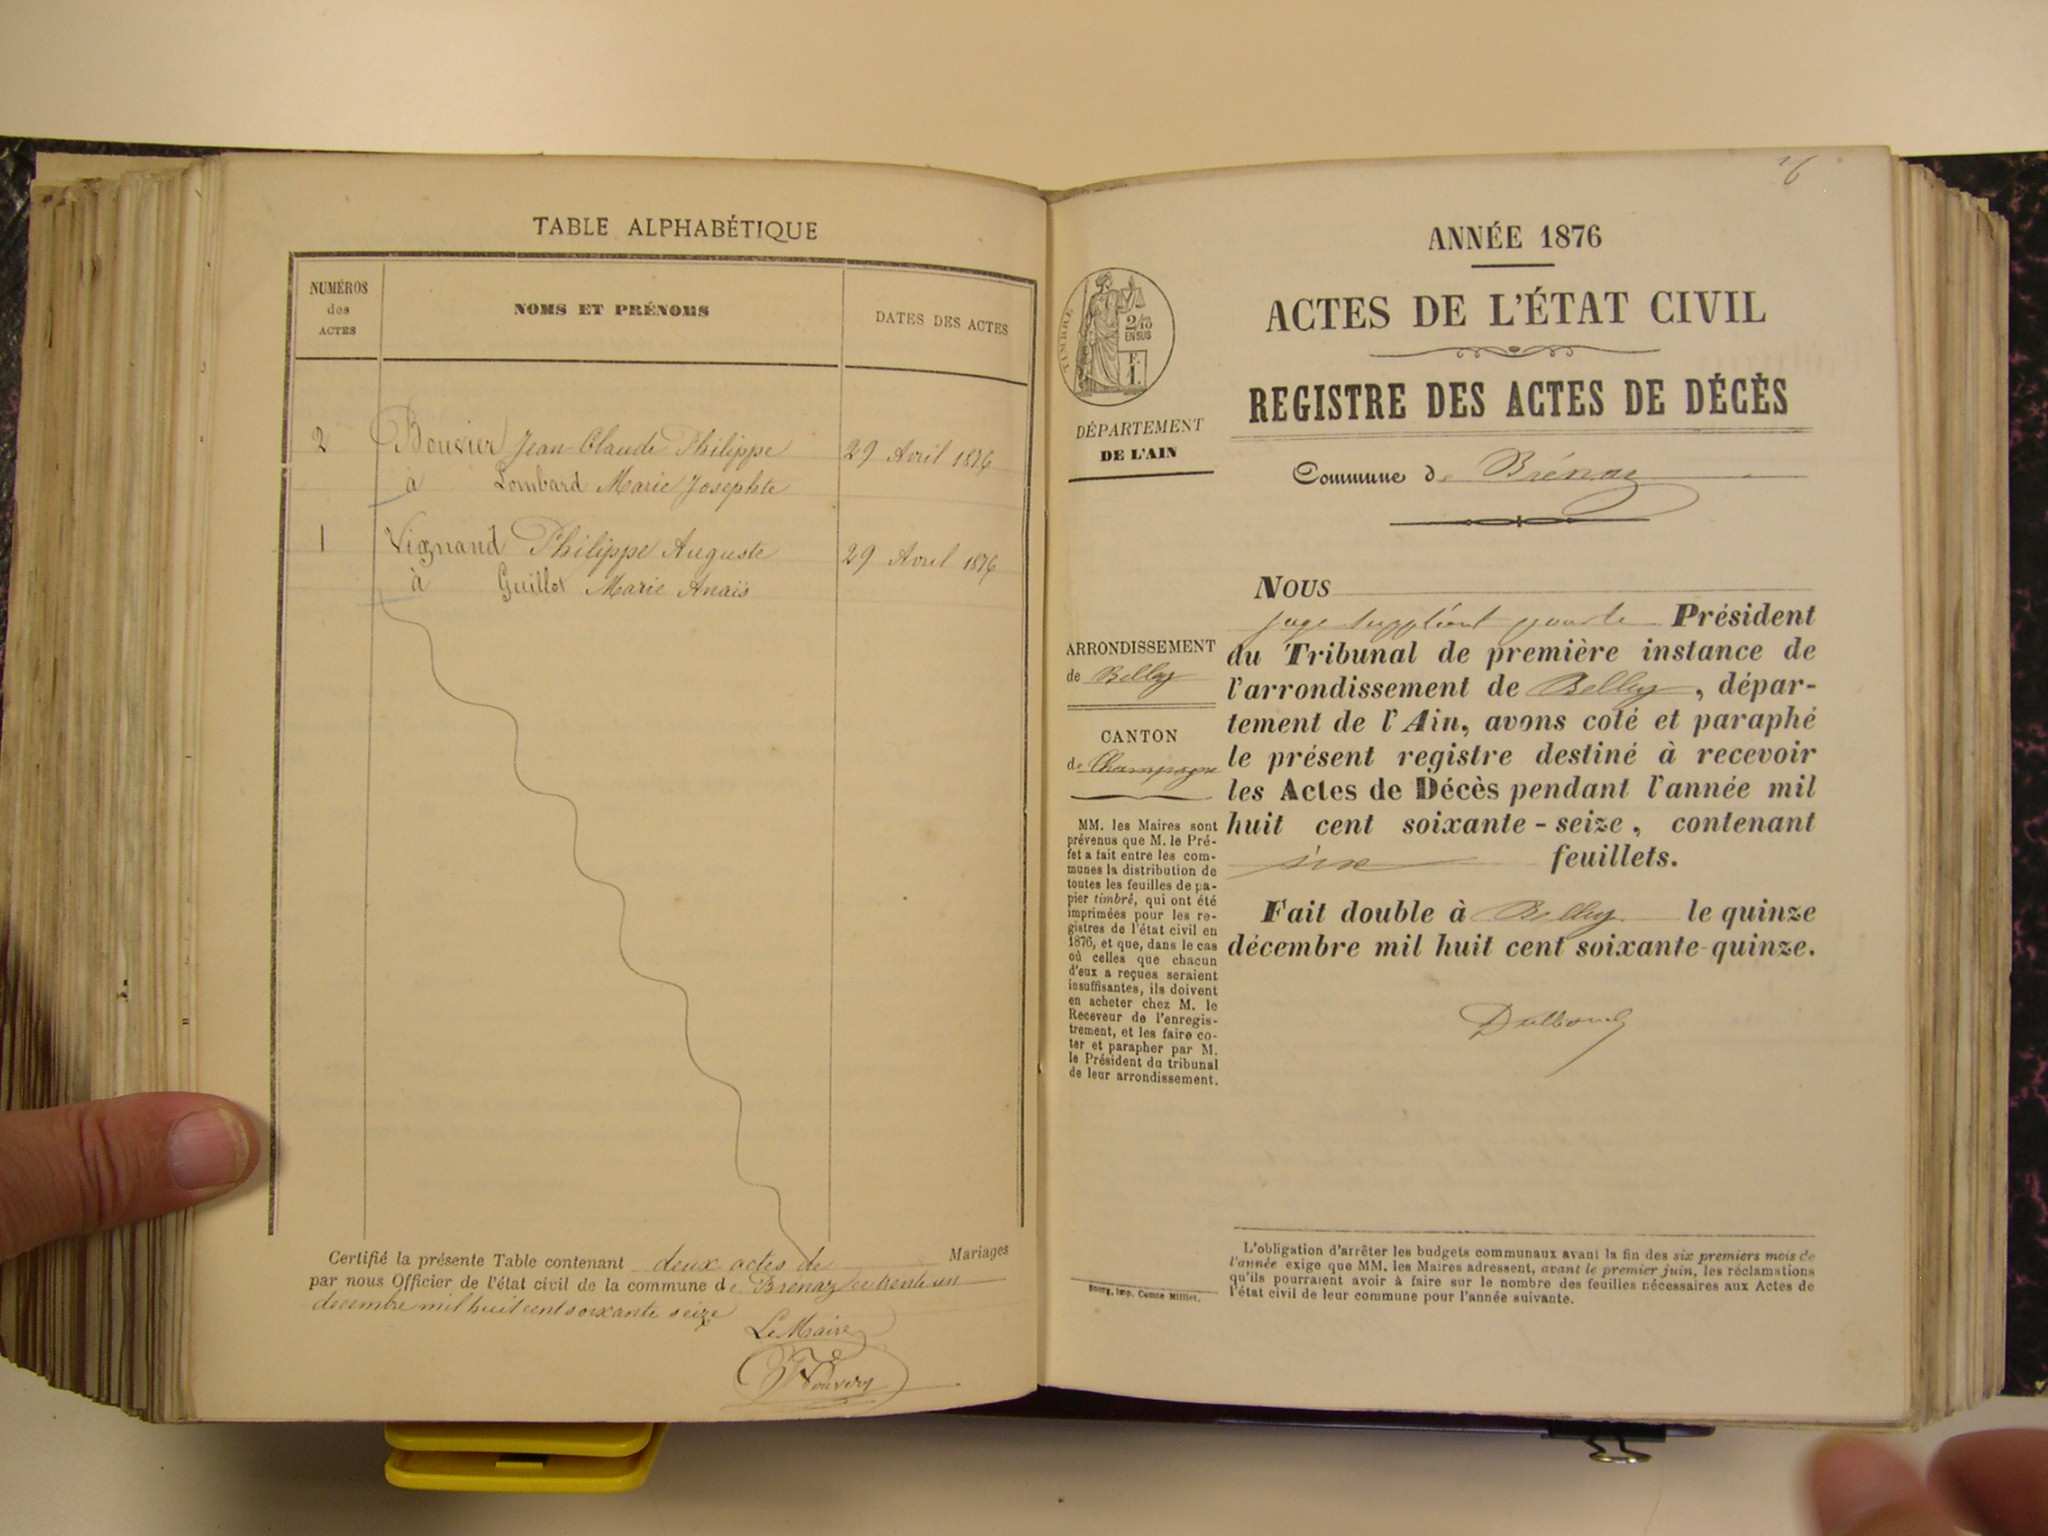 TABLE ALPHABÉTIQUE
NUMÉROS
des
ACTES
NOMS ET PRÉNOMS
DATES DES ACTES
2 Bouvier Jean-Claude Philippe 29 Avril 1876
à Lombard Marie Josephte
1 Vignand Philippe Auguste 29 Avril 1876
à Guillot Marie Anaïs
Certifié la présente Table contenant deux actes de Mariages
par nous Officier de l'état civil de la commune de Brenaz ce trente un
decembre mil huit cent soixante seize
Le Maire
ANNÉE 1876
ACTES DE L'ÉTAT CIVIL
REGISTRE DES ACTES DE DÉCÈS
Commune de Brénaz
TIMBRE
2/10
EN SUS
F.
1.
DÉPARTEMENT
DE L'AIN
ARRONDISSEMENT
de Belley
CANTON
de Champagne
MM. les Maires sont
prévenus que M. le Pré-
fet a fait entre les com-
munes la distribution de
toutes les feuilles de pa-
pier timbré, qui ont été
imprimées pour les re-
gistres de l'état civil en
1876, et que, dans le cas
où celles que chacun
d'eux a reçues seraient
insuffisantes, ils doivent
en acheter chez M. le
Receveur de l'enregis-
trement, et les faire co-
ter et parapher par M.
le Président du tribunal
de leur arrondissement.
Bourg, Imp. Comte Milliet.
NOUS
juge suppléant pour le Président
du Tribunal de première instance de
l'arrondissement de Belley, dépar-
tement de l'Ain, avons coté et paraphé
le présent registre destiné à recevoir
les Actes de Décès pendant l'année mil
huit cent soixante-seize, contenant
six feuillets.
Fait double à Belley le quinze
décembre mil huit cent soixante-quinze.
L'obligation d'arrêter les budgets communaux avant la fin des six premiers mois de
l'année exige que MM. les Maires adressent, avant le premier juin, les réclamations
qu'ils pourraient avoir à faire sur le nombre des feuilles nécessaires aux Actes de
l'état civil de leur commune pour l'année suivante.